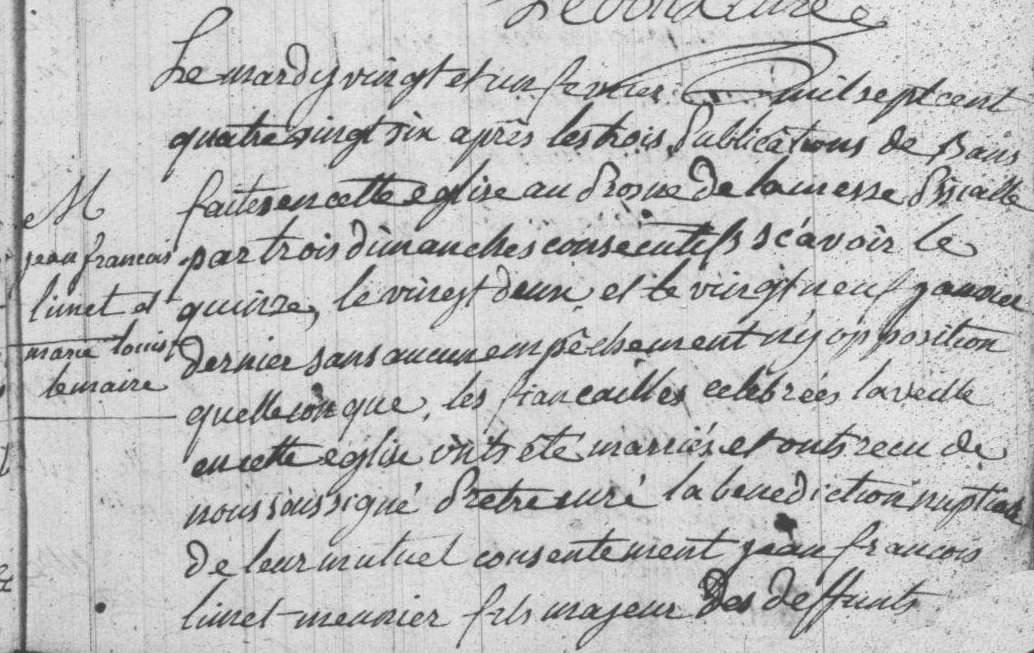 Le mardy vingt et un fevrier mil sept cent
quatre vingt six après les trois Publications de Bans
faites en cette eglise au Prosne de la messe P
par trois dimanches consécutifs sçavoir le
quinze, le vingt deux et le vingt neuf janvier
dernier sans aucun empêchement ny opposition
quelleconque, les fiancailles célébrées la veille
en cette eglise onts été marriés et onts recu de
nous soussigné Prêtre curé la benediction nuptiale
de leur mutuel consentement jean francois
limet meunier fils majeur des deffunts
M
jean francois
limet et
marie louise
lemaire